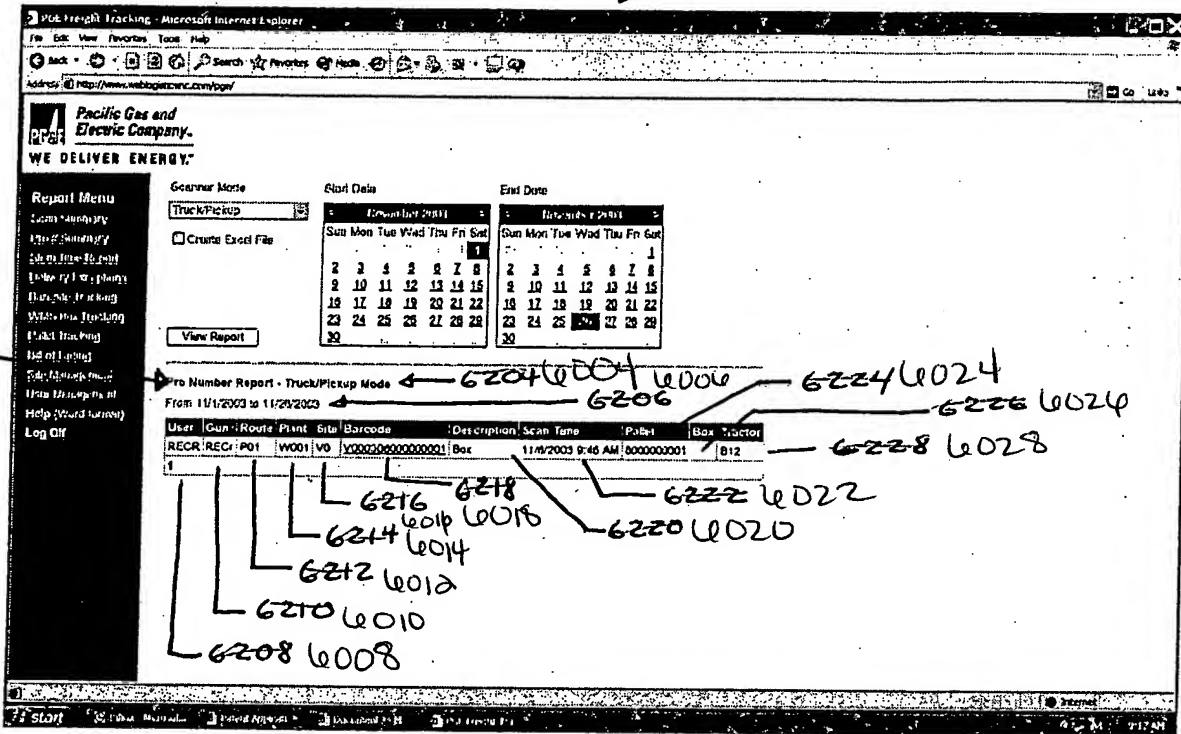 PG&E Freight Tracking - Microsoft Internet Explorer
File Edit View Favorites Tools Help
Back Search Favorites Media
Address http://www.weblogicsinc.com/pge/ Go Links
Pacific Gas and
Electric Company.
PG&E
WE DELIVER ENERGY.™
Report Menu
Scan Summary
Delivery Exceptions
Barcode Tracking
Pallet Tracking
Bill of Lading
Site Management
User Management
Help (Word format)
Log Off
Scanner Mode
Truck/Pickup
Create Excel File
View Report
Start Date
November 2003
Sun Mon Tue Wed Thu Fri Sat
1
2 3 4 5 6 7 8
9 10 11 12 13 14 15
16 17 18 19 20 21 22
23 24 25 26 27 28 29
30
End Date
November 2003
Sun Mon Tue Wed Thu Fri Sat
1
2 3 4 5 6 7 8
9 10 11 12 13 14 15
16 17 18 19 20 21 22
23 24 25 26 27 28 29
30
Pro Number Report - Truck/Pickup Mode
6204 6004 6006
From 11/1/2003 to 11/26/2003
6206
6224 6024
6226 6026
User Gun Route Plant Site Barcode Description Scan Time Pallet Box Tractor
RECR REC P01 W001 V0 V000306000000001 Box 11/6/2003 9:46 AM 8000000001 B12
1
6228 6028
6216 6016
6218 6018
6222 6022
6214 6014
6220 6020
6212 6012
6210 6010
6208 6008
Internet
start
9:17 AM